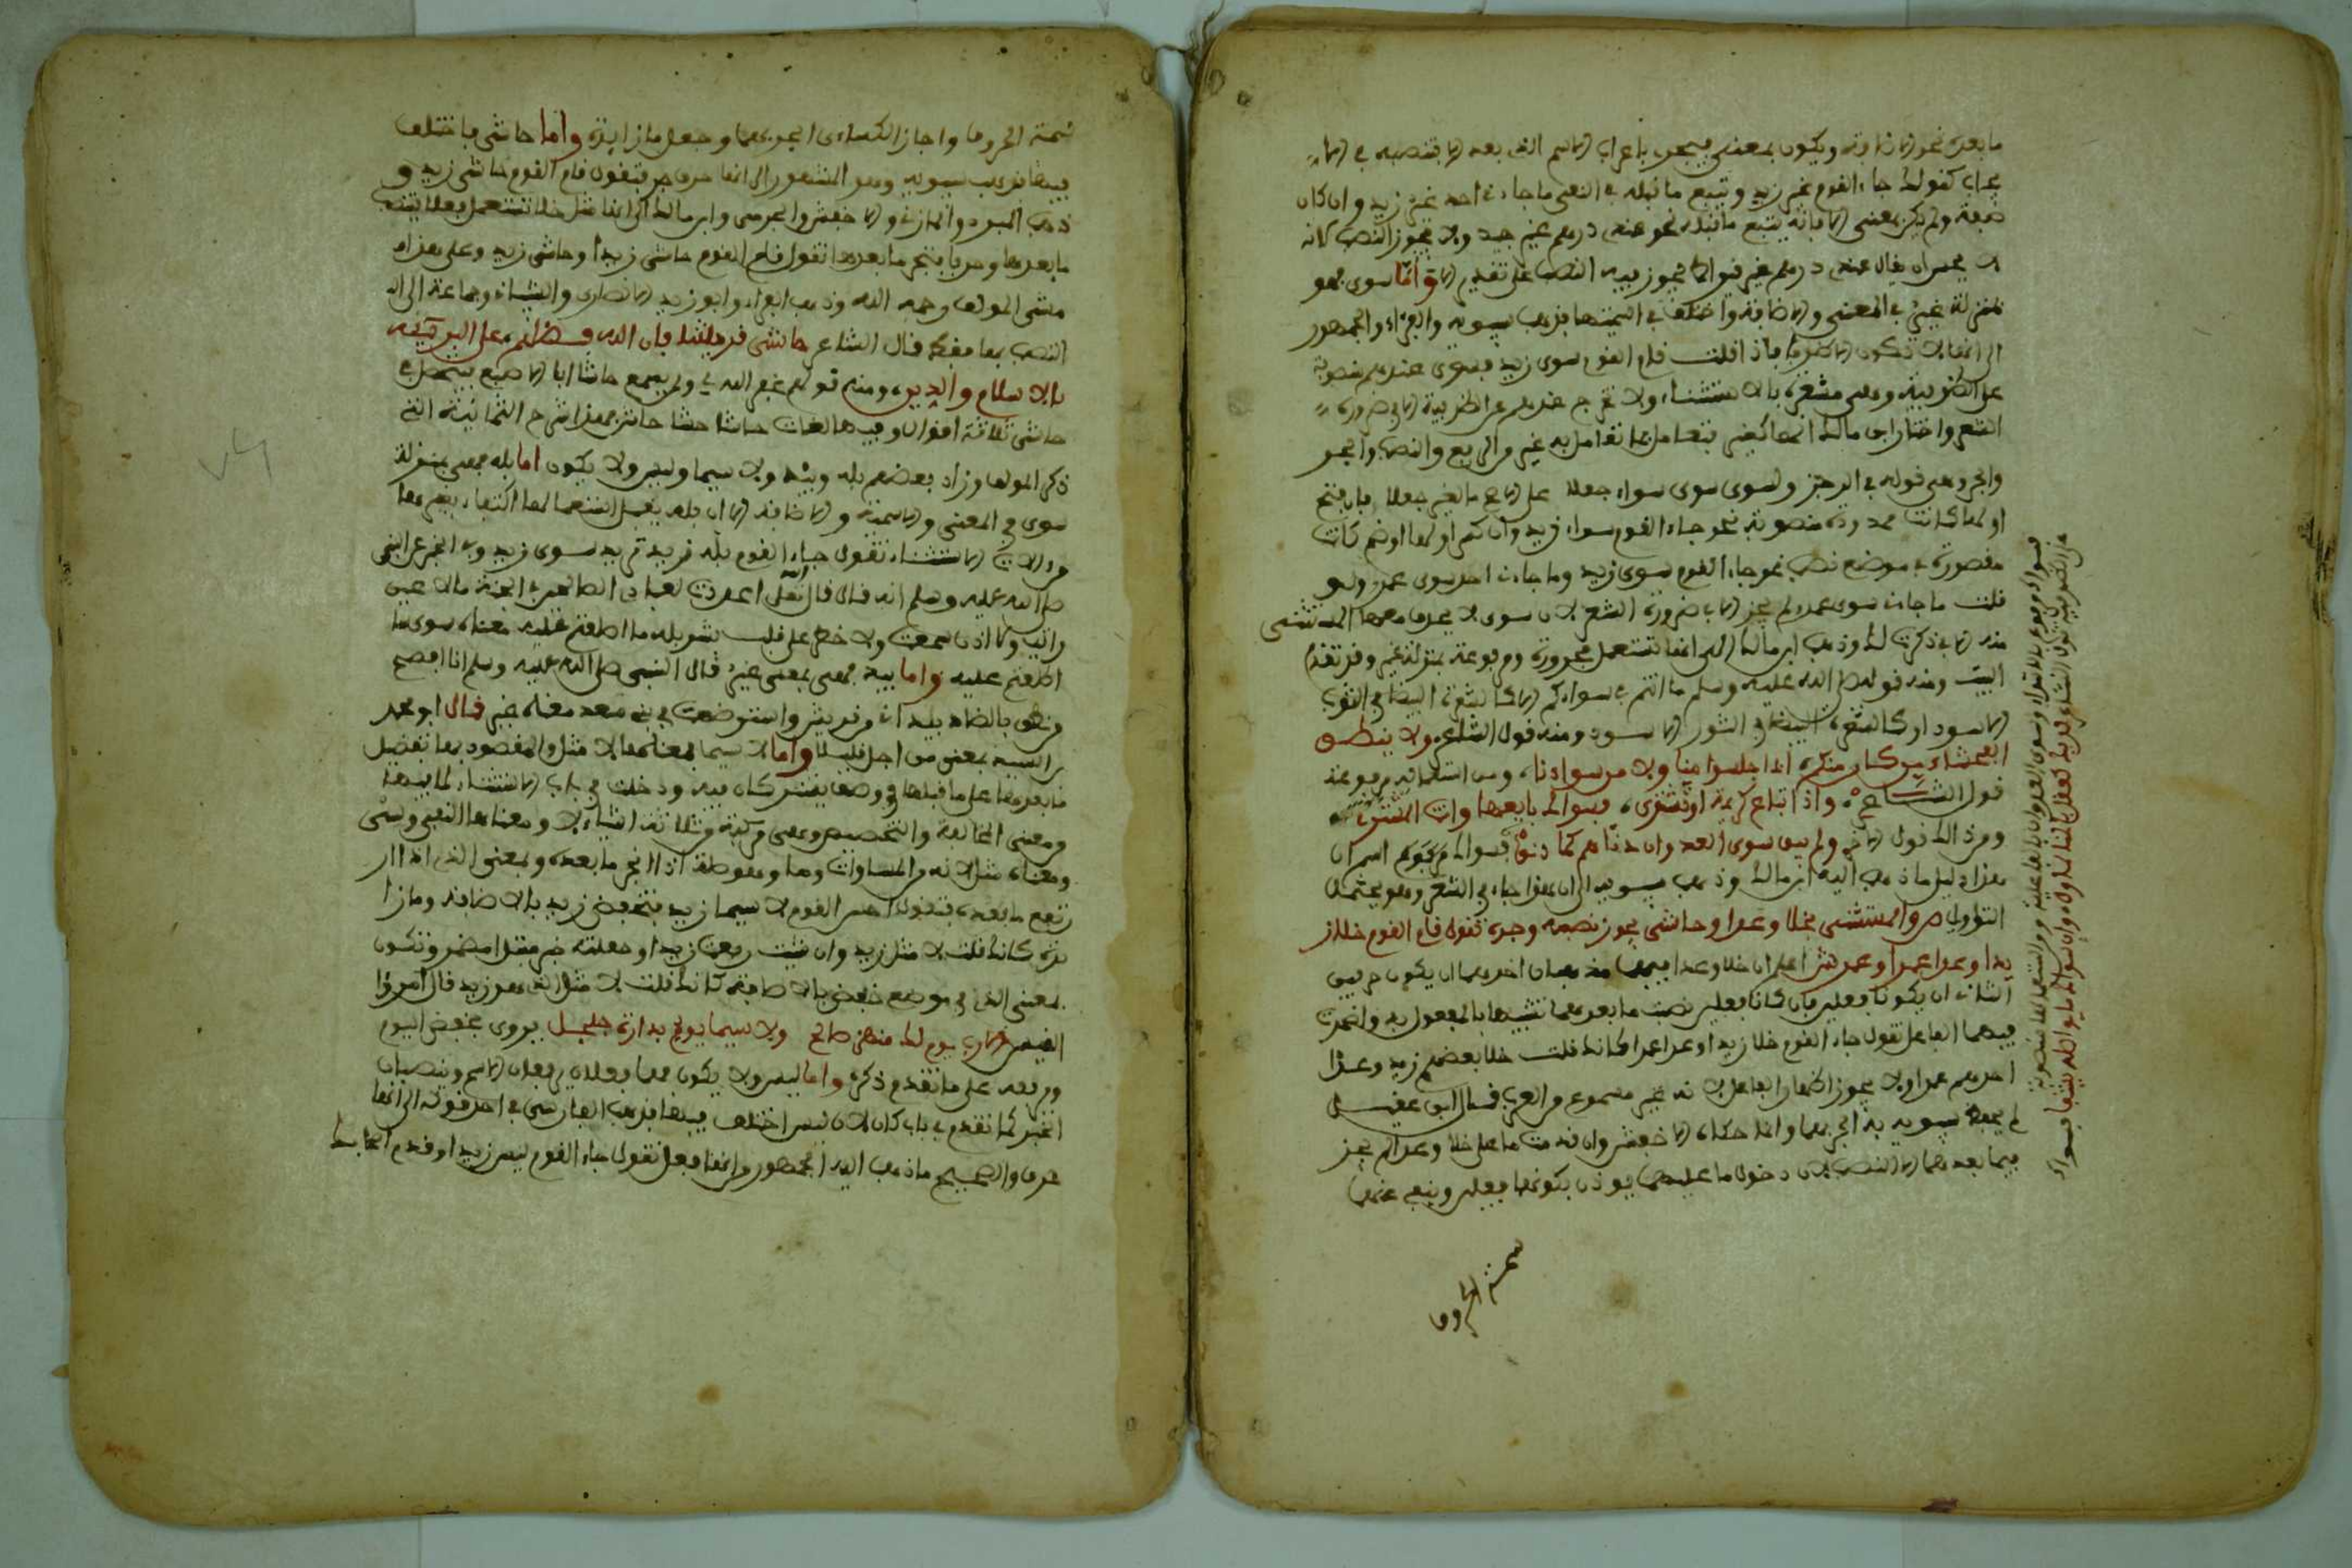 ما بعده نحو الا زاوته ويكون بمعنى فيجوز باعراب الاسم الذي بعد الا بتنصبه في الا
يجاب كقولك جاء القوم غير زيد وتتبع ما قبله في النفي ما جاءني احد غير زيد وان كان
صفة ولم يكن بمعنى الا فانه يتبع ما قبله نحو عندي درهم غير جيد ولا يجوز النصب لانه
لا يحسن ان يقال عندي درهم غير قيراط يجوز فيه النصب على تقدير الا واما سوى فهو
بمنزلة غير في المعنى والاضافة واختلف في اسميتها فذهب سيبويه والفراء والجمهور
الى انها لا تكون الا ظرفا فاذا قلت قام القوم سوى زيد فسوى عندهم منصوبة
على الظرفية وهي مشعرة بالاستثناء ولا تخرج عندهم عن الظرفية الا في ضرورة
الشعر واختار ابن مالك انها كغير فتعامل بما تعامل به غير من الرفع والنصب والجر
والجر وهي قوله في الرجز ولسوى سوى سواء جعلا على الاصح ما لغير جعلا فان فتح
اولها كانت ممدودة منصوبة نحو جاء القوم سواء زيد وان كسر اولها او ضم كانت
مقصورة في موضع نصب نحو جاء القوم سوى زيد وما جاءني احد سوى عمرو ولو
قلت ما جاءني سوى عمرو لم يجز الا في ضرورة الشعر لان سوى لا يحذف معها المستثنى
منه الا في ذكرت لك وذهب ابن مالك الى انها تستعمل مجرورة ومرفوعة بمنزلة غير وقد تقدم
البيت ومنه قوله صلى الله عليه وسلم ما انتم في سواكم الا كالشعرة البيضاء في الثور
الاسود او كالشعرة السوداء في الثور الابيض ومنه قول الشاعر ولا ينطق
الفحشاء من كان منكم اذا جلسوا منا ولا من سوائنا ومن استعمالها مرفوعة
قول الشاعر واذا تباع كريمة او تشترى فسواك بايعها وانت المشتري
ومن ذلك قول الاخر ولم يبق سوى العدوان دناهم كما دانوا فسواك مرفوع اسم ان
هذا دليل ما ذهب اليه ابن مالك وذهب سيبويه الى ان هذا جاء في الشعر وهو محتمل
التاويل ص والمستثنى بخلا وعدا وحاشى يجوز نصبه وجره تقول قام القوم خلا زيـ
يدا وعدا عمرا وعمرو ش اعلم ان خلا وعدا فيهما مذهبان احدهما ان يكونا حرفين
الثاني ان يكونا فعلين فان كانا فعلين نصبت ما بعدهما تشبيها بالمفعول به واضمرت
فيهما الفاعل تقول جاء القوم خلا زيدا وعدا عمرا كانك قلت خلا بعضهم زيدا وعدا
احدهم عمرا ولا يجوز اظهار الفاعل لانه غير مسموع من العرب قال ابن عقيل
لم يحفظ سيبويه الجر بهما وانما حكاه الاخفش وان قدمت ما على خلا وعدا لم يجز
فيما بعدهما الا النصب لان دخول ما عليهما يوذن بكونهما فعلين وينفي عنهما
شمة الحروف
شمة الحروف واجاز الكساءي الجر بهما وجعل ما زايدة واما حاشى فاختلف
فيها فذهب سيبويه وهو المشهور الى انها حرف جر فتقول قام القوم حاشى زيد و
ذهب المبرد والمازني والاخفش والجرمي وابن مالك الى انها مثل خلا تستعمل فعلا فتنصب
ما بعدها وحرفا فتجر ما بعدها تقول قام القوم حاشى زيدا وحاشى زيد وعلى هذا
مشى المولف رحمه الله وذهب الفراء وابو زيد الانصاري والشيباني وجماعة الى ان
النصب بها فقط قال الشاعر حاشى قريشا فان الله فضلهم على البرية
بالاسلام والدين ومنه قولهم غفر الله لي ولمن يسمع حاشا ابا الاصبع فيتحصل في
حاشى ثلاثة اقوال وفيها لغات حاشا حشا حاش فهذا شرح الثمانية التي
ذكر المولف وزاد بعضهم بله وبيد ولا سيما وليس ولا يكون اما بله فهي بمنزلة
سوى في المعنى والاسمية والاضافة الا ان بله يقل استعمالها
من الات الاستثناء تقول جاء القوم بله زيد تريد سوى زيد وفي الخبر عن النبي
صلى الله عليه وسلم انه قال قال الله تعلى اعددت لعبادي الصالحين في الجنة ما لا عين
رات ولا اذن سمعت ولا خطر على قلب بشر بله ما اطلعتم عليه معناه سوى ما
اطلعتم عليه واما بيد فهي بمعنى غير قال النبي صلى الله عليه وسلم انا افصح
من نطق بالضاد بيد اني من قريش واسترضعت في بني سعد معناه غير قال ابو محمد
بن السيد بمعنى من اجل واما لا سيما فمعناها لا مثل والمقصود بها تفضيل
ما بعدها على ما قبلها في وصف يشتركان فيه ودخلت في باب الاستثناء لما فيها
من معنى المخالفة والتخصيص وهي مركبة من ثلاثة اشياء لا ومعناها النفي وسي
ومعناه مثل لانه من المساوات وما وهو صلة اذا انجر ما بعده وبمعنى الذي اذا ار
تفع ما بعده فتقول احسن القوم لا سيما زيد بتخفيض زيد بالاضافة وما زا
يدة كانك قلت لا مثل زيد وان شيت رفعت زيدا وجعلته خبر مبتدا مضمر وتكون
بمعنى الذي في موضع خفض بالاضافة كانك قلت لا مثل الذي هو زيد قال امرؤ
القيس الا رب يوم لك منهن صالح ولا سيما يوم بدارة جلجل يروى بخفض اليوم
ورفعه على ما تقدم ذكره واما ليس ولا يكون فهما فعلان يرفعان الاسم وينصبان
الخبر كما تقدم في باب كان لان ليس اختلف فيها فذهب الفارسي في احد قوليه الى انها
حرف والصحيح ما ذهب اليه الجمهور من انها فعل تقول جاء القوم ليس زيدا وقدم الحاج